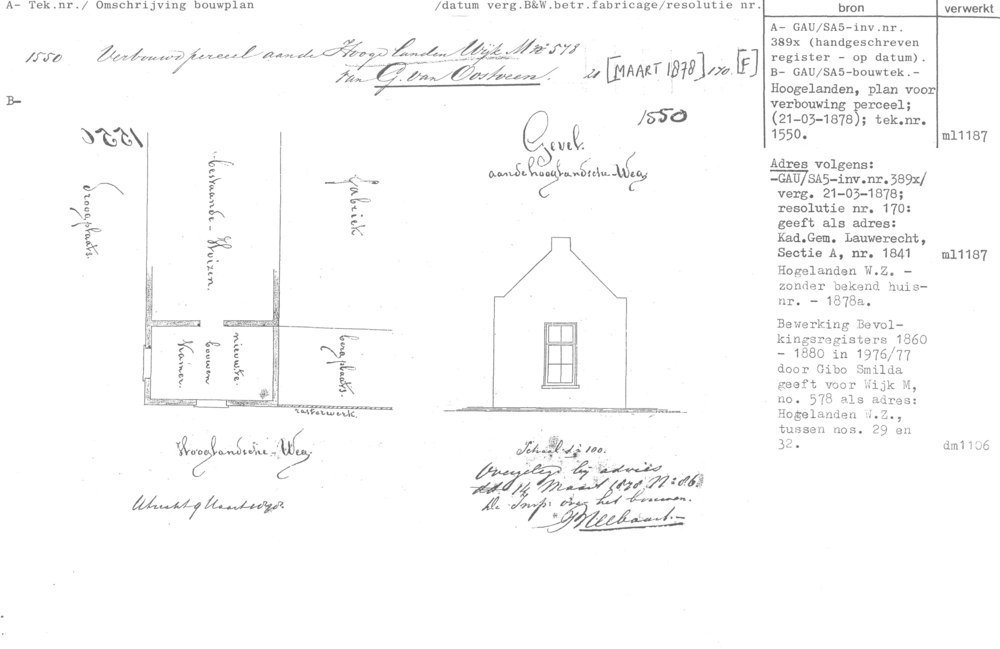 A- Tek.nr./ Omschrijving bouwplan /datum verg.B&W.betr.fabricage/resolutie nr.
bron
verwerkt
1550 Verbouwd perceel aan de Hooge landen Wijk M No 578
van G. van Oostveen. 21 [MAART 1878] 170 [F]
A- GAU/SA5-inv.nr.
389x (handgeschreven
register - op datum).
B- GAU/SA5-bouwtek.-
Hoogelanden, plan voor
verbouwing perceel;
(21-03-1878); tek.nr.
1550. ml1187
B-
1550
1550
Gevel.
aan de hooglandsche-Weg.
droogplaats.
bestaande-Huizen.
fabriek
nieuwte
bouwen
Kamer.
bergplaats.
rasterwerk.
Hooglandsche-Weg.
Utrecht 9 Maart 1878.
Schaal 1 à 100.
Overgelegd bij advies
dd. 14 Maart 1878 No: 86.
De Insp: over het bouwen.
Adres volgens:
-GAU/SA5-inv.nr.389x/
verg. 21-03-1878;
resolutie nr. 170:
geeft als adres:
Kad.Gem. Lauwerecht,
Sectie A, nr. 1841 ml1187
Hogelanden W.Z. -
zonder bekend huis-
nr. - 1878a.
Bewerking Bevol-
kingsregisters 1860
- 1880 in 1976/77
door Gibo Smilda
geeft voor Wijk M,
no. 578 als adres:
Hogelanden W.Z.,
tussen nos. 29 en
32. dm1106